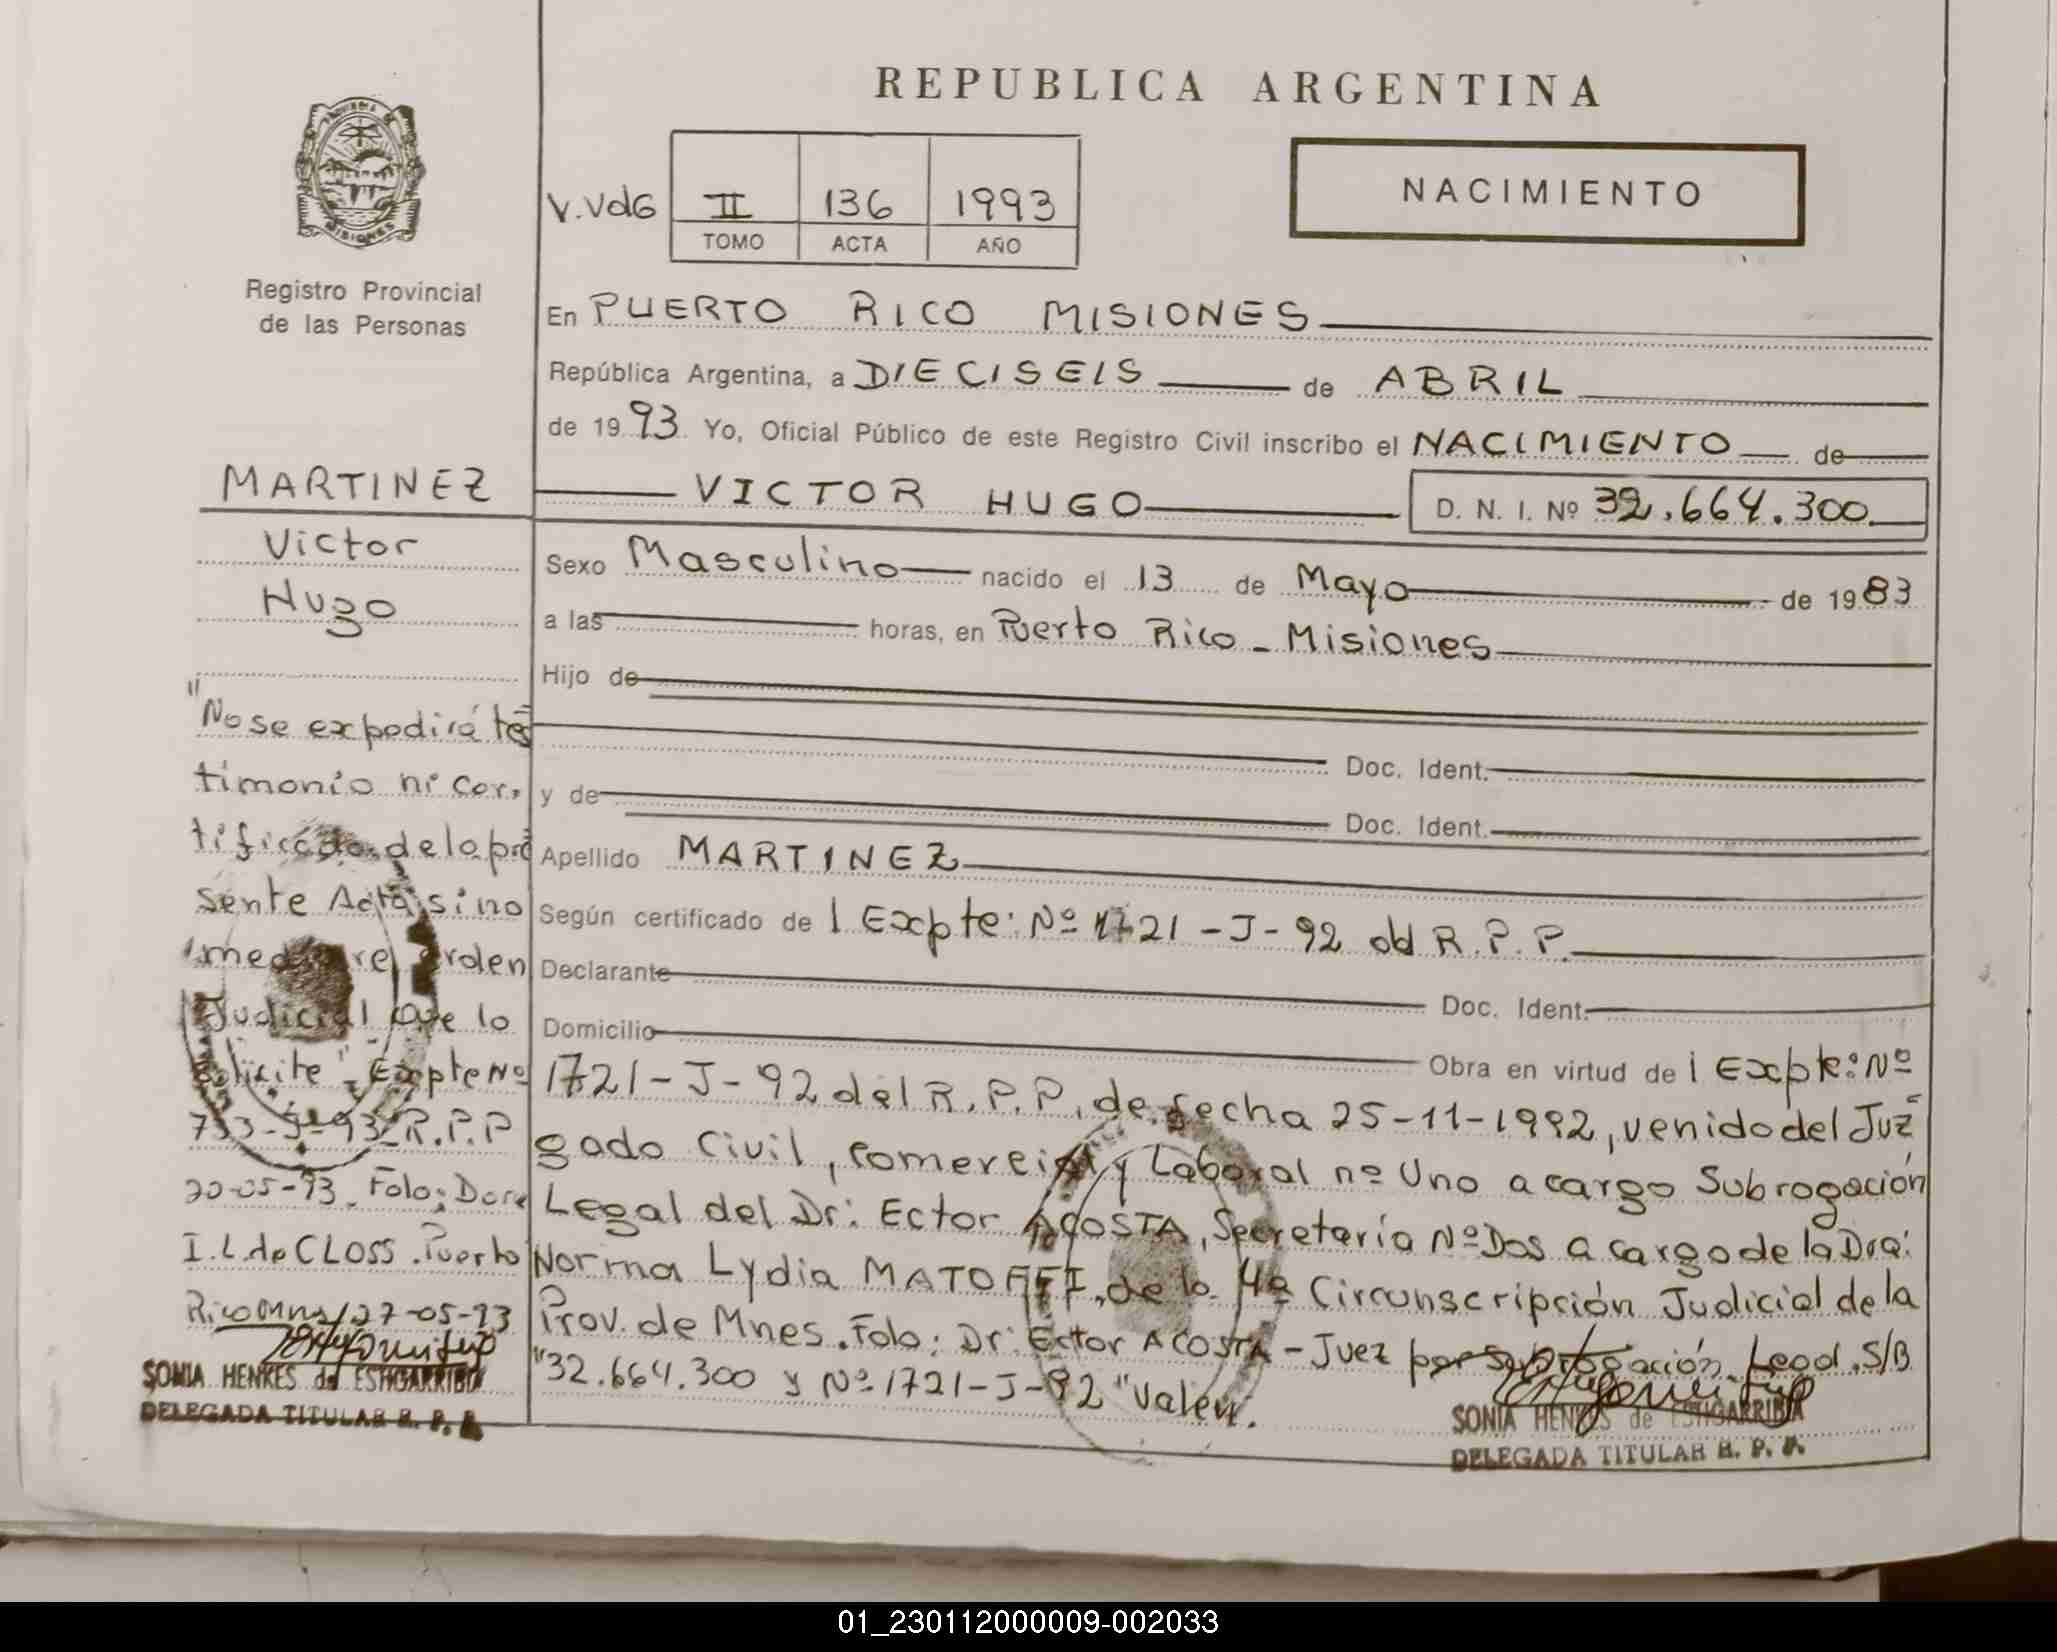 REPUBLICA ARGENTINA
NACIMIENTO
V.VdG II 136 1993
TOMO ACTA AÑO
Registro Provincial
de las Personas
En PUERTO RICO MISIONES
República Argentina, a DIECISEIS de ABRIL
de 1993 Yo, Oficial Público de este Registro Civil inscribo el NACIMIENTO de
VICTOR HUGO D. N. I. Nº 32.664.300
Sexo Masculino nacido el 13 de Mayo de 1983
a las horas, en Puerto Rico - Misiones
Hijo de
Doc. Ident.
y de
Doc. Ident.
Apellido MARTINEZ
Según certificado de l Expte: Nº 1721-J-92 del R.P.P.
Declarante Doc. Ident.
Domicilio Obra en virtud de l Expte: Nº
1721-J-92 del R.P.P. de fecha 25-11-1992, venido del Juz
gado Civil, Comercial y Laboral nº Uno a cargo Subrogación
Legal del Dr: Ector ACOSTA, Secretaría Nº Dos a cargo de la Dra:
Norma Lydia de la 4ª Circunscripción Judicial de la
Prov. de Mnes. Fdo: Dr: Ector ACOSTA - Juez por Subrogación Legal. S/B
"32.664.300 y Nº 1721-J-92" Valen.
SONIA HENKES de ESTIGARRIBIA
DELEGADA TITULAR R. P. P.
MARTINEZ
Victor
Hugo
"No se expedirá tes
timonio ni cer-
tificado de la pre
sente Acta, si no
mediare orden
Judicial que lo
solicite" - Expte Nº
733-J-93 R.P.P
20-05-93. Fdo: Dora
I.L. de CLOSS. Puerto
Rico Mns/27-05-93
SONIA HENKES de ESTIGARRIBIA
DELEGADA TITULAR R. P. P.
01_230112000009-002033